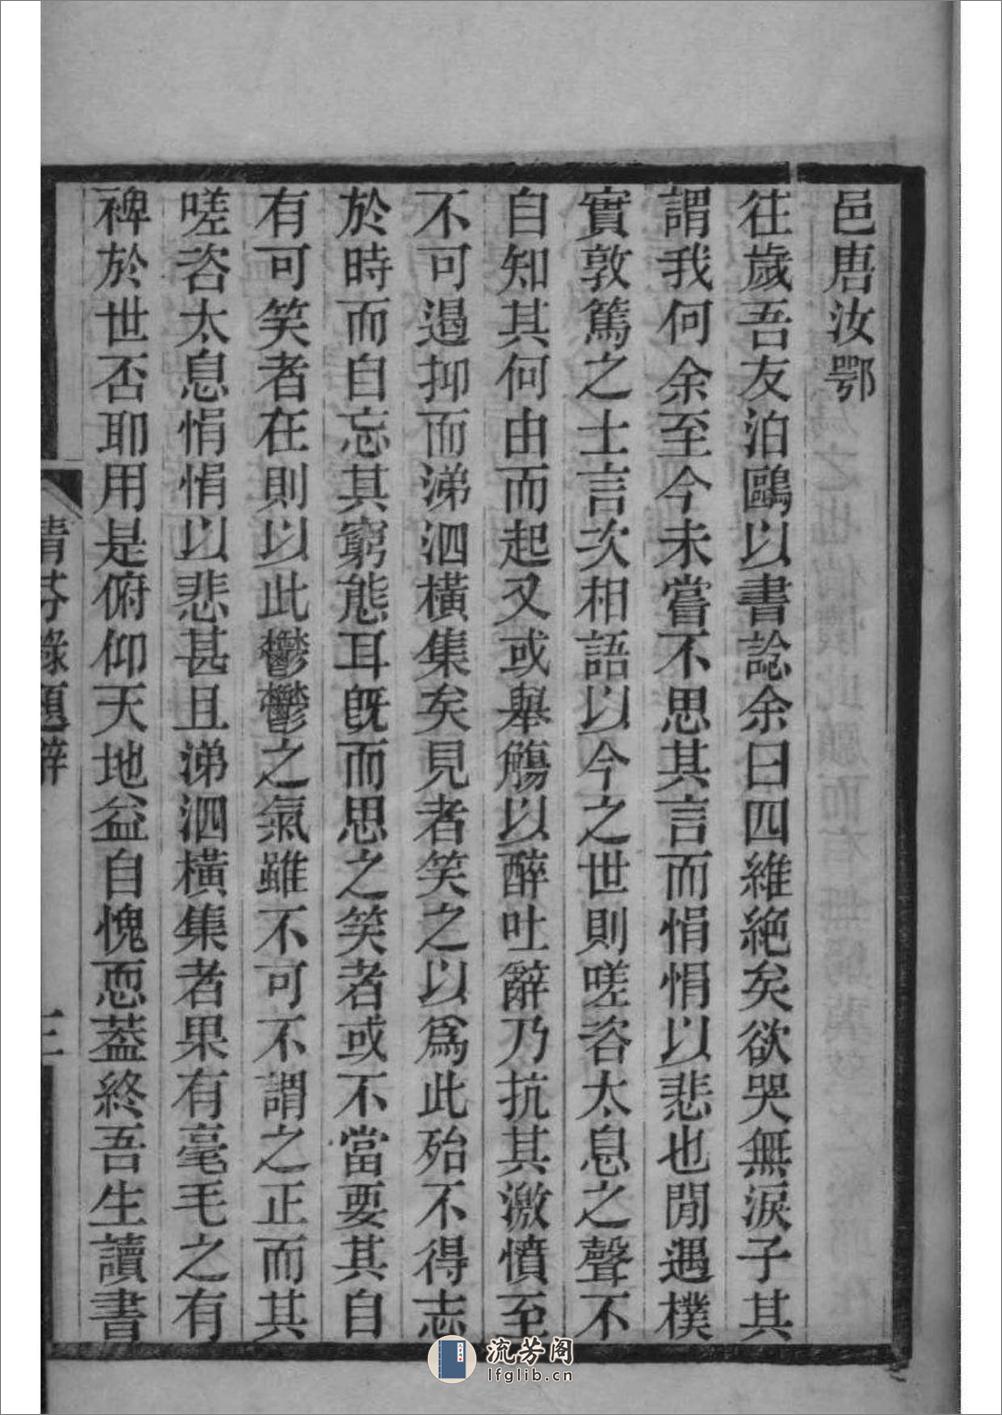 邑唐汝鄂
往歲吾友泊鷗以書諗余曰四維絕矣欲哭無淚子其
謂我何余至今未嘗不思其言而悁悁以悲也閒遇樸
實敦篤之士言次相語以今之世則嗟咨太息之聲不
自知其何由而起又或舉觴以醉吐辭乃抗其激憤至
不可遏抑而涕泗橫集矣見者笑之以爲此殆不得志
於時而自忘其窮態耳旣而思之笑者或不當要其自
有可笑者在則以此鬱鬱之氣雖不可不謂之正而其
嗟咨太息悁悁以悲甚且涕泗橫集者果有毫毛之有
裨於世否耶用是俯仰天地益自愧恧蓋終吾生讀書
清芬錄題辭
三
流芳阁
lfglib.cn